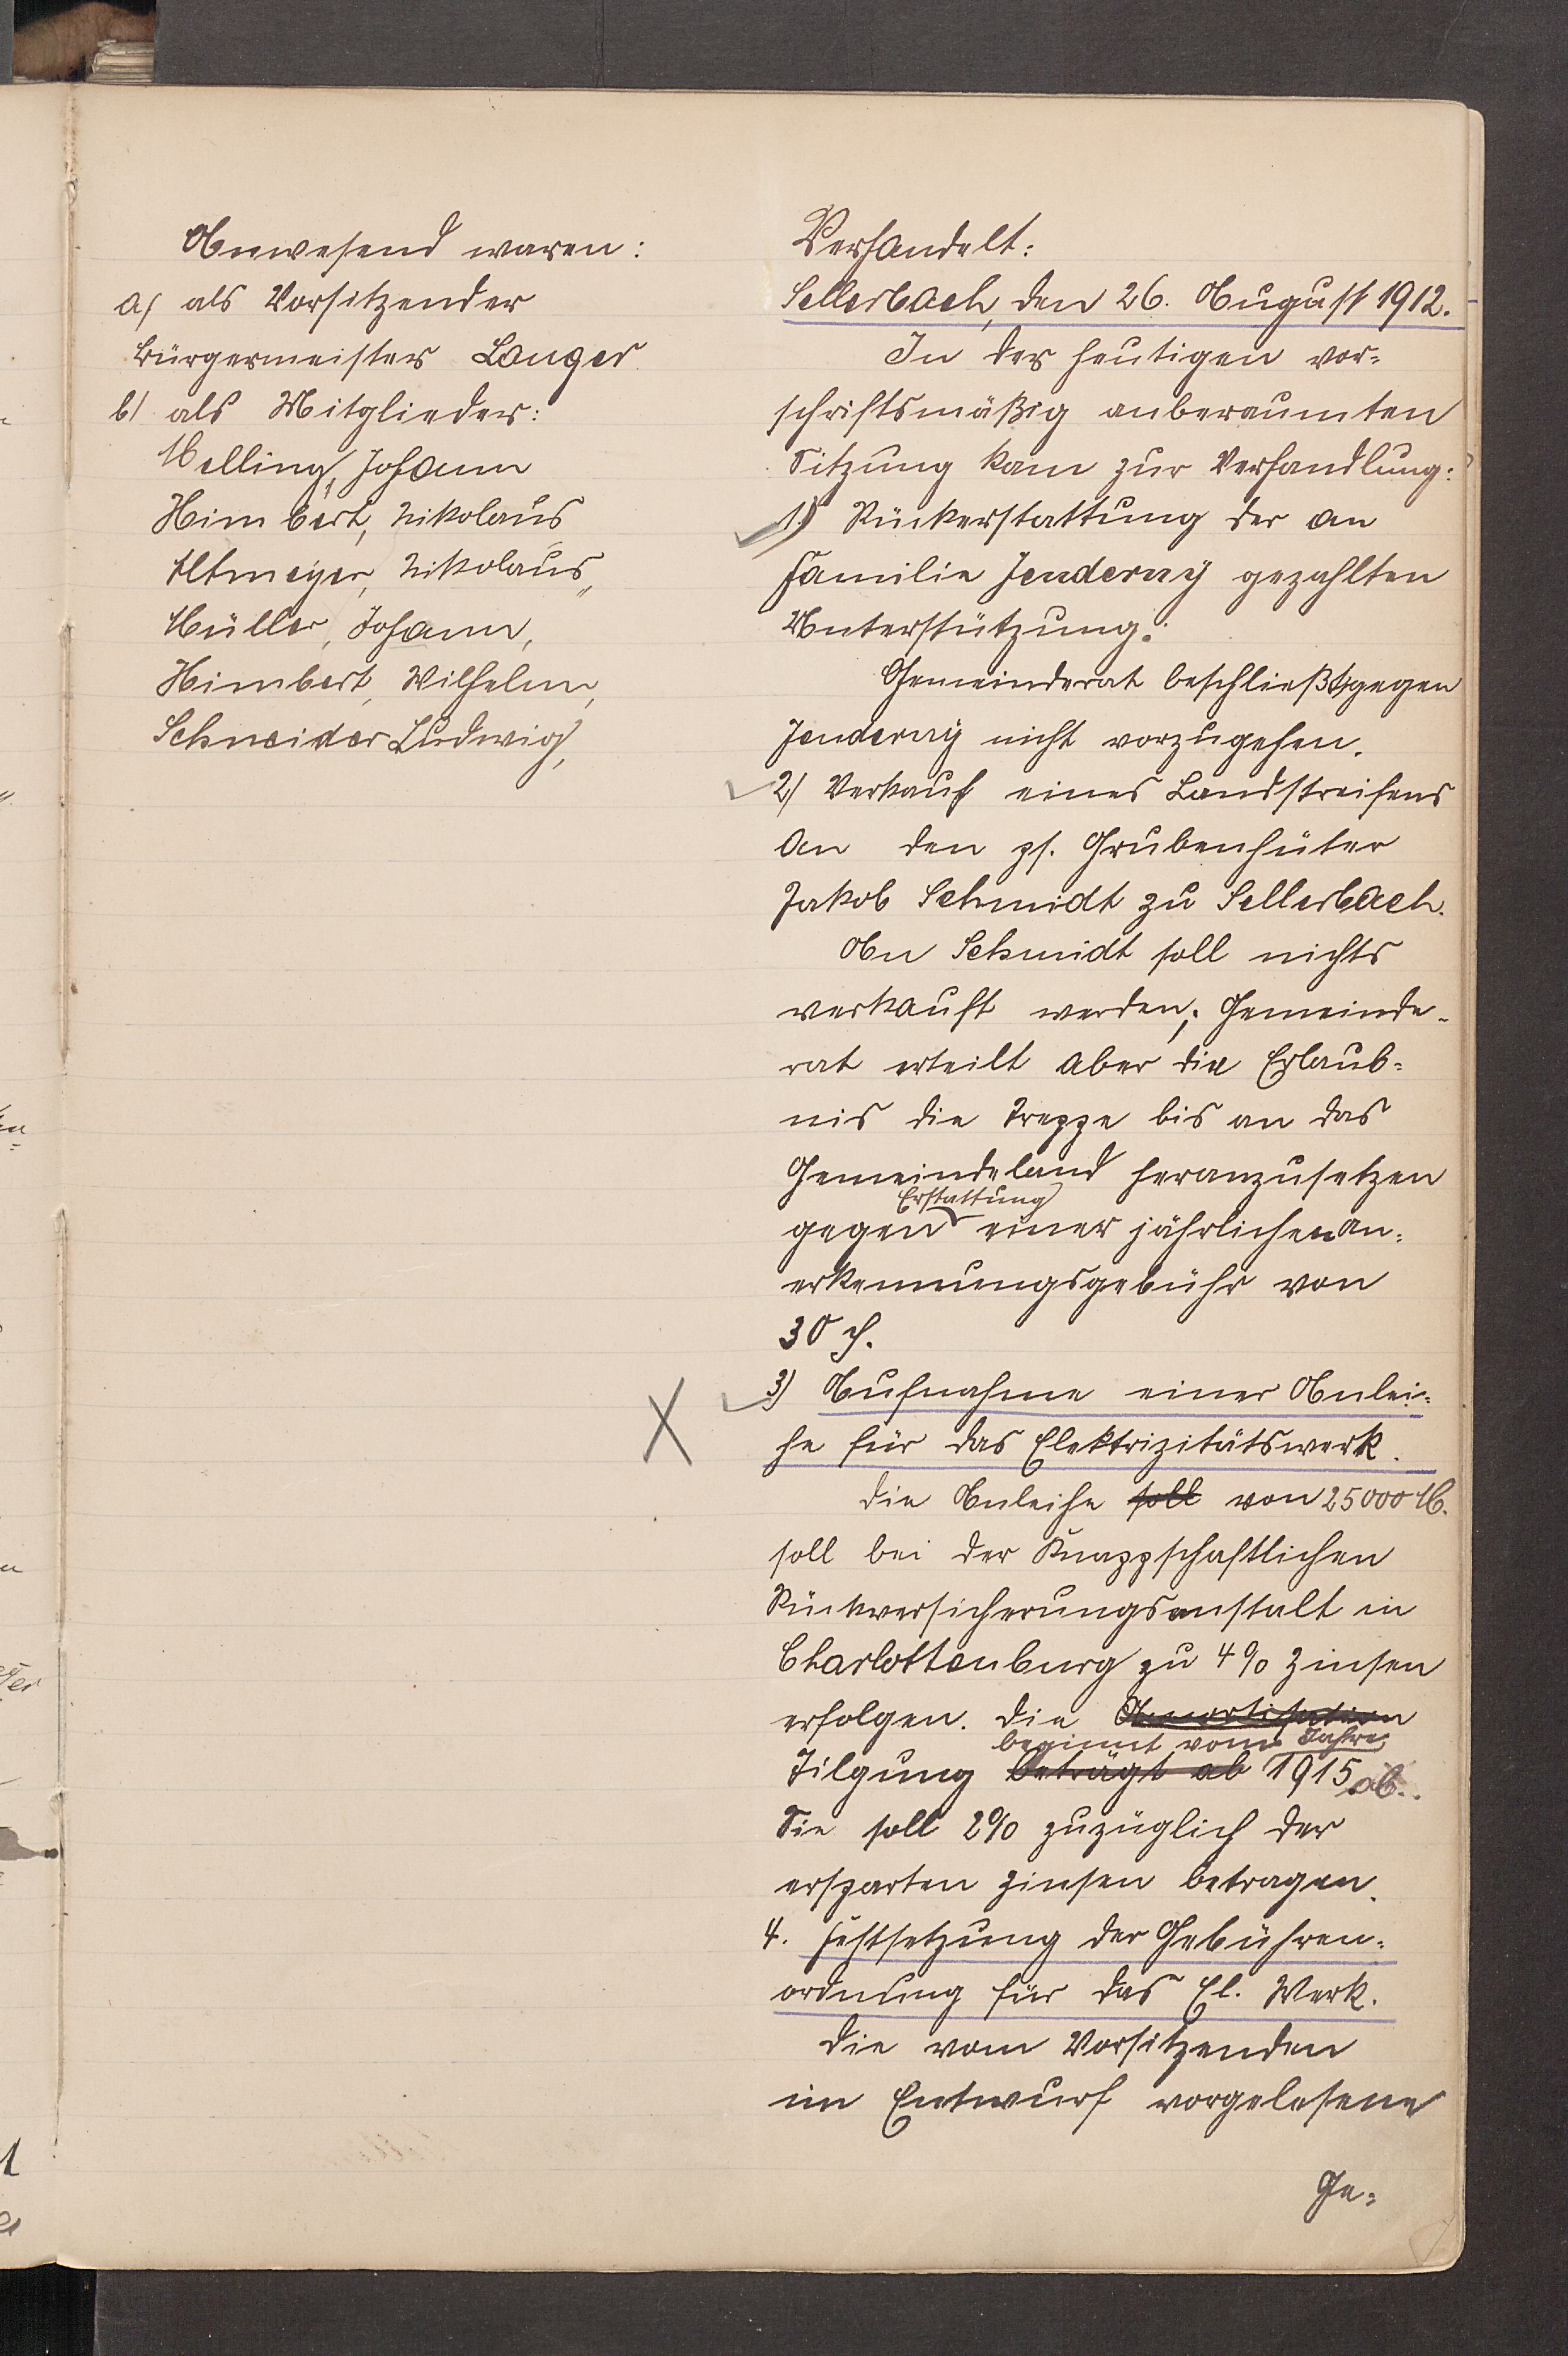 Anwesend waren:
a) als Vorsitzender
Bürgermeister Langer
b) als Mitglieder:
Melling, Johann
Himbert, Nikolaus
Altmeyer, Nikolaus,
Müller, Johann,
Himbert, Wilhelm,
Schneider Ludwig,
Verhandelt:
Sellerbach, den 26. August 1912.
In der heutigen vor=
schriftsmäßig anberaumten
Sitzung kam zur Verhandlung:
1.) Rückerstattung der an
Familie Jenderny gezahlten
Unterstützung.
Gemeinderat beschließt, gegen
Jenderny nicht vorzugehen.
2) Verkauf eines Landstreifens
an den ps. Grubenhüter
Jakob Schmidt zu Sellerbach.
An Schmidt soll nichts
verkauft werden; Gemeinde-
rat erteilt aber die Erlaub=
nis die Treppe bis an das
Gemeindeland heranzusetzen
Erstattung
gegen einer jährlichen An=
erkennungsgebühr von
30 ₰.
3) Aufnahme einer Anlei=
he für das Elektrizitätswerk.
Die Anleihe soll von 25000 M.
soll bei der Knappschaftlichen
Rückversicherungsanstalt in
Charlottenburg zu 4% Zinsen
erfolgen. Die Amortisation
beginnt vom Jahre
Tilgung beträgt ab 1915 ab.
Sie soll 2% zuzüglich der
ersparten Zinsen betragen.
4. Festsetzung der Gebühren=
ordnung für das El. Werk.
Die vom Vorsitzenden
im Entwurf vorgelesene
Ge=